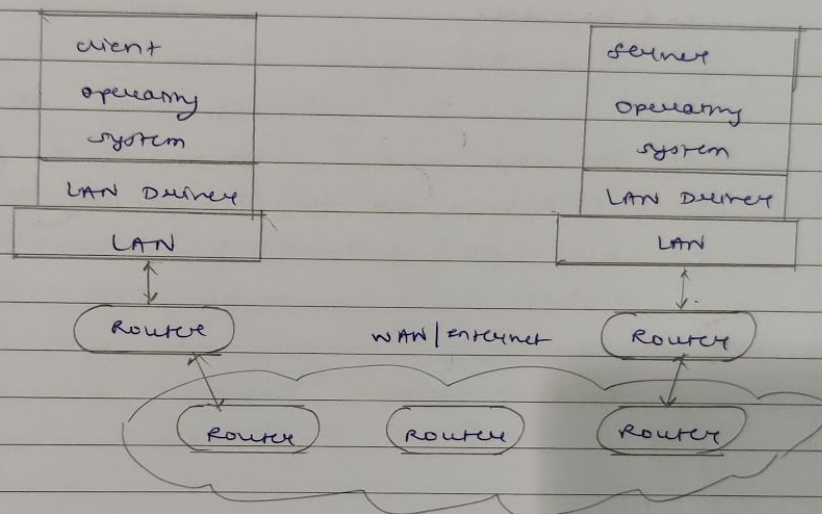 client
operating
system
LAN Driver
LAN
Router
server
operating
system
LAN Driver
LAN
Router
WAN/Internet
Router
Router
Router